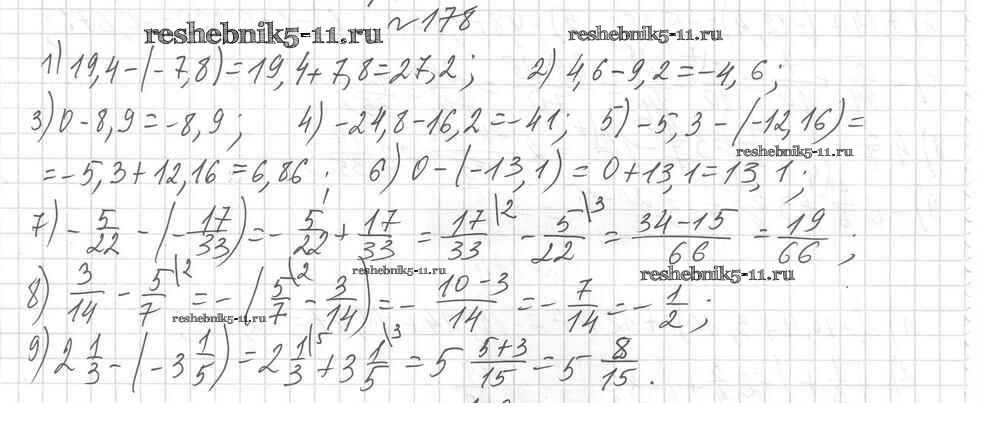 №178
reshebnik5-11.ru reshebnik5-11.ru
1) 19,4-(-7,8)=19,4+7,8=27,2; 2) 4,6-9,2=-4,6;
3) 0-8,9=-8,9; 4) -24,8-16,2=-41; 5) -5,3-(-12,16)=
reshebnik5-11.ru
=-5,3+12,16=6,86; 6) 0-(-13,1)=0+13,1=13,1;
7) -5/22-(-17/33)=-5/22+17/33=17/33\2-5/22\3=34-15/66=19/66;
reshebnik5-11.ru reshebnik5-11.ru
8) 3/14-5/7\2=-(5/7\2-3/14)=-10-3/14=-7/14=-1/2;
reshebnik5-11.ru
9) 2 1/3-(-3 1/5)=2 1/3\5+3 1/5\3=5 5+3/15=5 8/15.